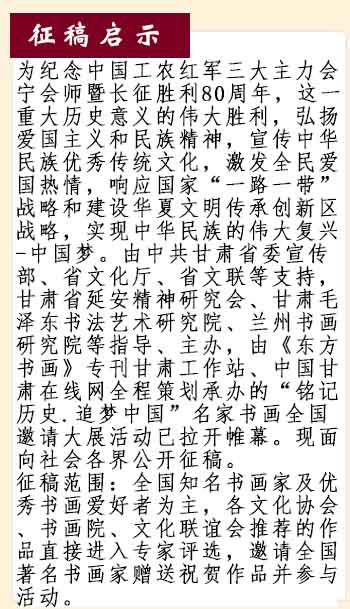 征稿启示
为纪念中国工农红军三大主力会
宁会师暨长征胜利80周年，这一
重大历史意义的伟大胜利，弘扬
爱国主义和民族精神，宣传中华
民族优秀传统文化，激发全民爱
国热情，响应国家“一路一带”
战略和建设华夏文明传承创新区
战略，实现中华民族的伟大复兴
-中国梦。由中共甘肃省委宣传
部、省文化厅、省文联等支持，
甘肃省延安精神研究会、甘肃毛
泽东书法艺术研究院、兰州书画
研究院等指导、主办，由《东方
书画》专刊甘肃工作站、中国甘
肃在线网全程策划承办的“铭记
历史.追梦中国”名家书画全国
邀请大展活动已拉开帷幕。现面
向社会各界公开征稿。
征稿范围：全国知名书画家及优
秀书画爱好者为主，各文化协会
、书画院、文化联谊会推荐的作
品直接进入专家评选，邀请全国
著名书画家赠送祝贺作品并参与
活动。